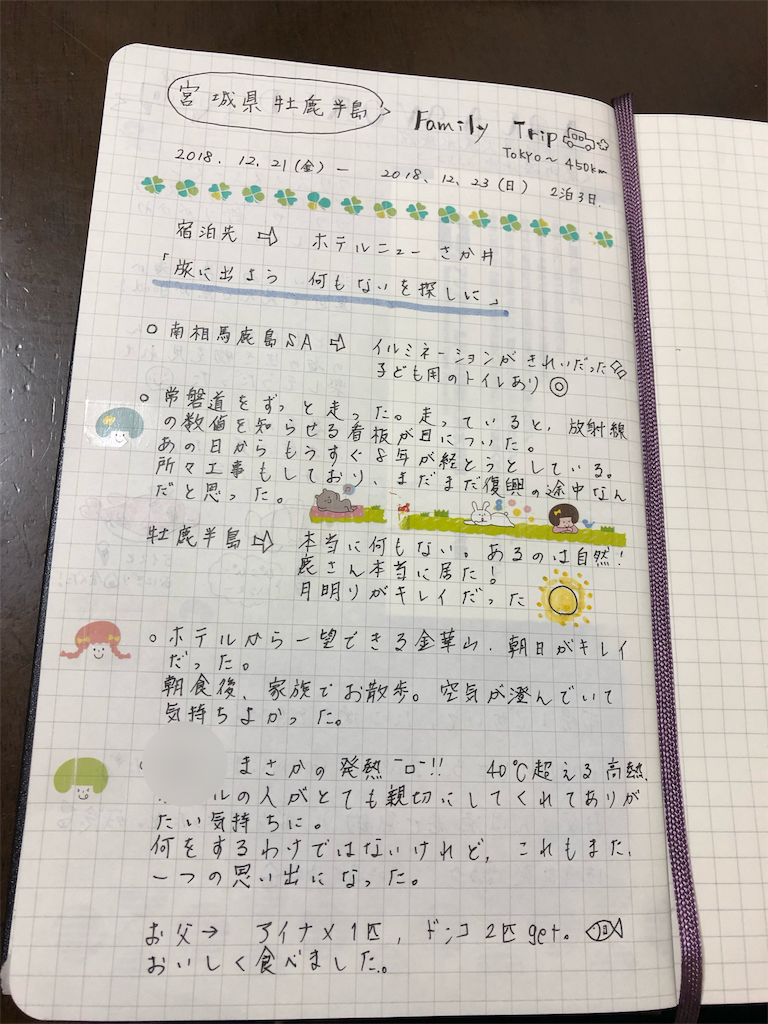 宮城県牡鹿半島
Family Trip
Tokyo～450km
2018.12.21(金)ー2018.12.23(日) 2泊3日.
宿泊先⇨ホテルニューさか井
「旅に出よう 何もないを探しに」
○南相馬鹿島SA⇨イルミネーションがきれいだった
子ども用のトイレあり◎
○常磐道をずっと走った。走っていると，放射線
の数値を知らせる看板が目についた。
あの日からもうすぐ8年が経とうとしている。
所々工事もしており、まだまだ復興の途中なん
だと思った。
牡鹿半島⇨本当に何もない。あるのは自然！
鹿さん本当に居た！
月明りがキレイだった
○ホテルから一望できる金華山．朝日がキレイ
だった。
朝食後、家族でお散歩。空気が澄んでいて
気持ちよかった。
まさかの発熱 ¯ロ¯!! 40℃超える高熱.
ルの人がとても親切にしてくれてありが
たい気持ちに。
何をするわけではないけれど，これもまた、
一つの思い出になった。
お父→ アイナメ1匹，ドンコ2匹get。
おいしく食べました。